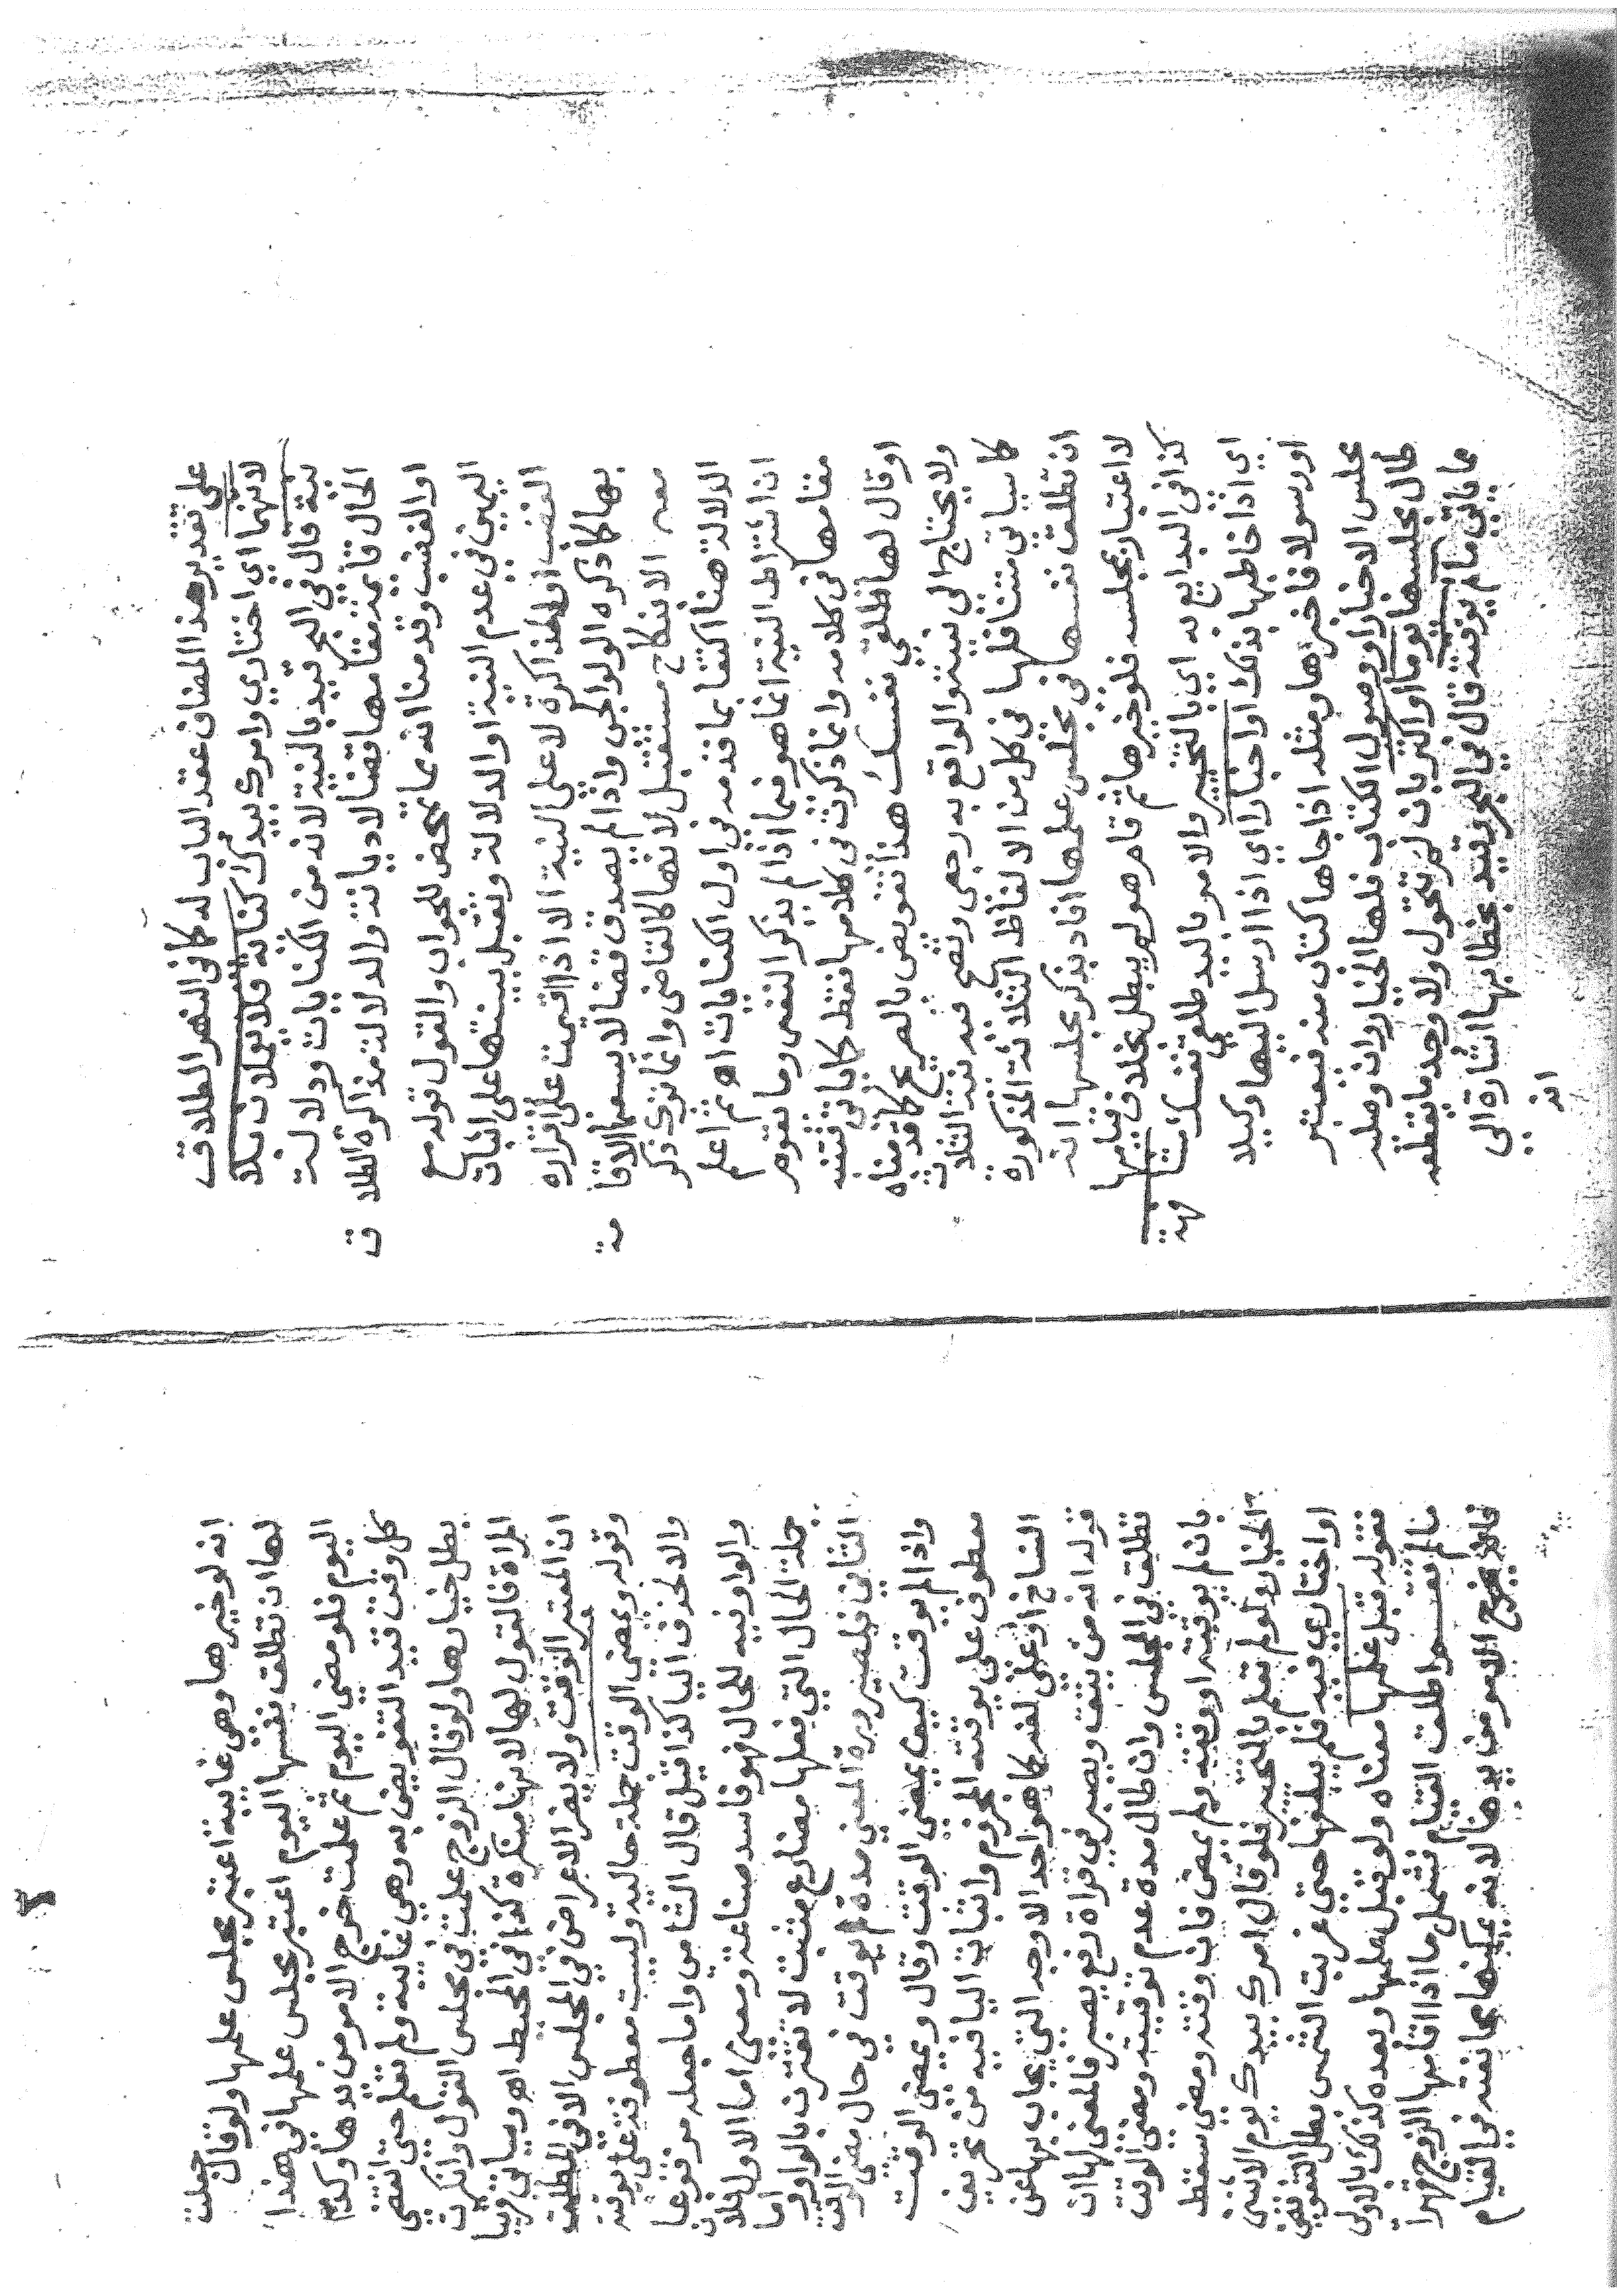 على تقدير هذا المضاف عقد الباب له كما في النهر الطلاق
لانهما اي اختاري وامرك بيدك كناية فلا يعملان بلا
نية قال في البحر قيد بالنية لانه من الكنايات ودلالة
الحال قايمة مقامها قضا لا ديانة والدلالة مذاكرة الطلاق
او الغضب وقدمنا انه مما تمحض للجواب والقول قوله مع
اليمين في عدم النية او الدلالة وتقبل بينتها على اثبات
الغضب او المذاكرة لا على النية الا اذا اقيمت على اقراره
بها كما ذكره الولوالجي واذا لم يصدق قضا لا يسعها الاقامة
معه الا بنكاح مستقبل لانها كالقاضي وانما ترك ذكر
الدلالة هنا اكتفا بما قدمه في اول الكنايات اه ثم اعلم
ان اشتراط النية انما هو فيما اذا لم يذكر النفس وما يقوم
مقامها في كلامه وانما ذكرت في كلامها فقط كما ياتي فتنبه
او قال لها طلقي نفسك هذا تفويض بالصريح كما قدمناه
ولا يحتاج الى نية والواقع به رجعي وتصح فيه نية الثلاث
كما سياتي متنا فلها في كل من الالفاظ الثلاثة المذكورة
ان تطلق نفسها في مجلس علمها افاد بذكر مجلسها انه
لا اعتبار بمجلسه فلو خيرها ثم قام هو لم يبطل بخلاف قيامها
كذا في البدايع به اي بالتخيير والامر باليد طلقي نفسك مشافهة
اي اذا خاطبها بذلك او اخبارا اي اذا ارسل اليها وكيلا
او رسولا فاخبرها ومثله اذا جاها كتاب منه فيعتبر
مجلس الاخبار او وصول الكتاب فلها الخيار وان وصليه
طال مجلسها يوما او اكثر بان لم تتحول ولا وجد ما يقطعه
مما ياتي ما لم يوقته قال في البحر بتقييد بخطابها اشارة الى
انه
انه لو خيرها وهي غايبة اعتبر مجلس علمها ولو قال جعلت
لها ان تطلق نفسها اليوم اعتبر مجلس علمها في هذا
اليوم فلو مضى اليوم ثم علمت خرج الامر من يدها وكذا
كل وقت قيد التفويض به وهي غايبة ولم تعلم حتى انقضى
بطل خيارها ولو قال الزوج علمت في مجلس القول وانكرت
المراة فالقول لها لانها منكرة كذا في المحيط اه وسياتي قريبا
ان المعتبر الوقت ولا يضر الاعراض في المجلس الا في المطلقة
وقوله ويمضي الوقت جملة حالية وليست معطوفة على يوقته
والا لحذف اليا كذا قيل قال الشامي واما جعله مرفوعا
والواو فيه للحال فهو فاسد صناعة ومعنى اما الاول فلان
جملة الحال التي فعلها مضارع مثبت لا تقترن بالواو واما
الثاني فلصيرورة المعنى مدة لم يوقت في حال مضي الوقت
واذا لم يوقت كيف يمضي الوقت وقال ويمضى الوقت
معطوف على يوقته المجزوم واثبات اليا فيه من تحريف
النساخ او على لغة كما هو احد الاوجه التي يجاب بها عن
قوله انه من يتق ويصبر في قراة رفع يصبر فالمعنى لها ان
تطلق في المجلس وان طال مدة عدم توقيته ومضي الوقت
بان لم يوقته او وقته ولم يمض فان وقته ومضى سقط
الخيار ولو لم تعلم بالتخيير فلو قال امرك بيدك يوم الاثنين
او اختاري فيه فلم يبلغها حتى غربت الشمس بطل التفويض
بقوله قبل علمها معناه ولو قبل علمها وبعده كذلك بالاولى
ما لم تقم سواء طلت القيام فشمل ما اذا اقامها الزوج قهرا
فانه يخرج الامر من يدها لانه يمكنها ممانعته في القيام